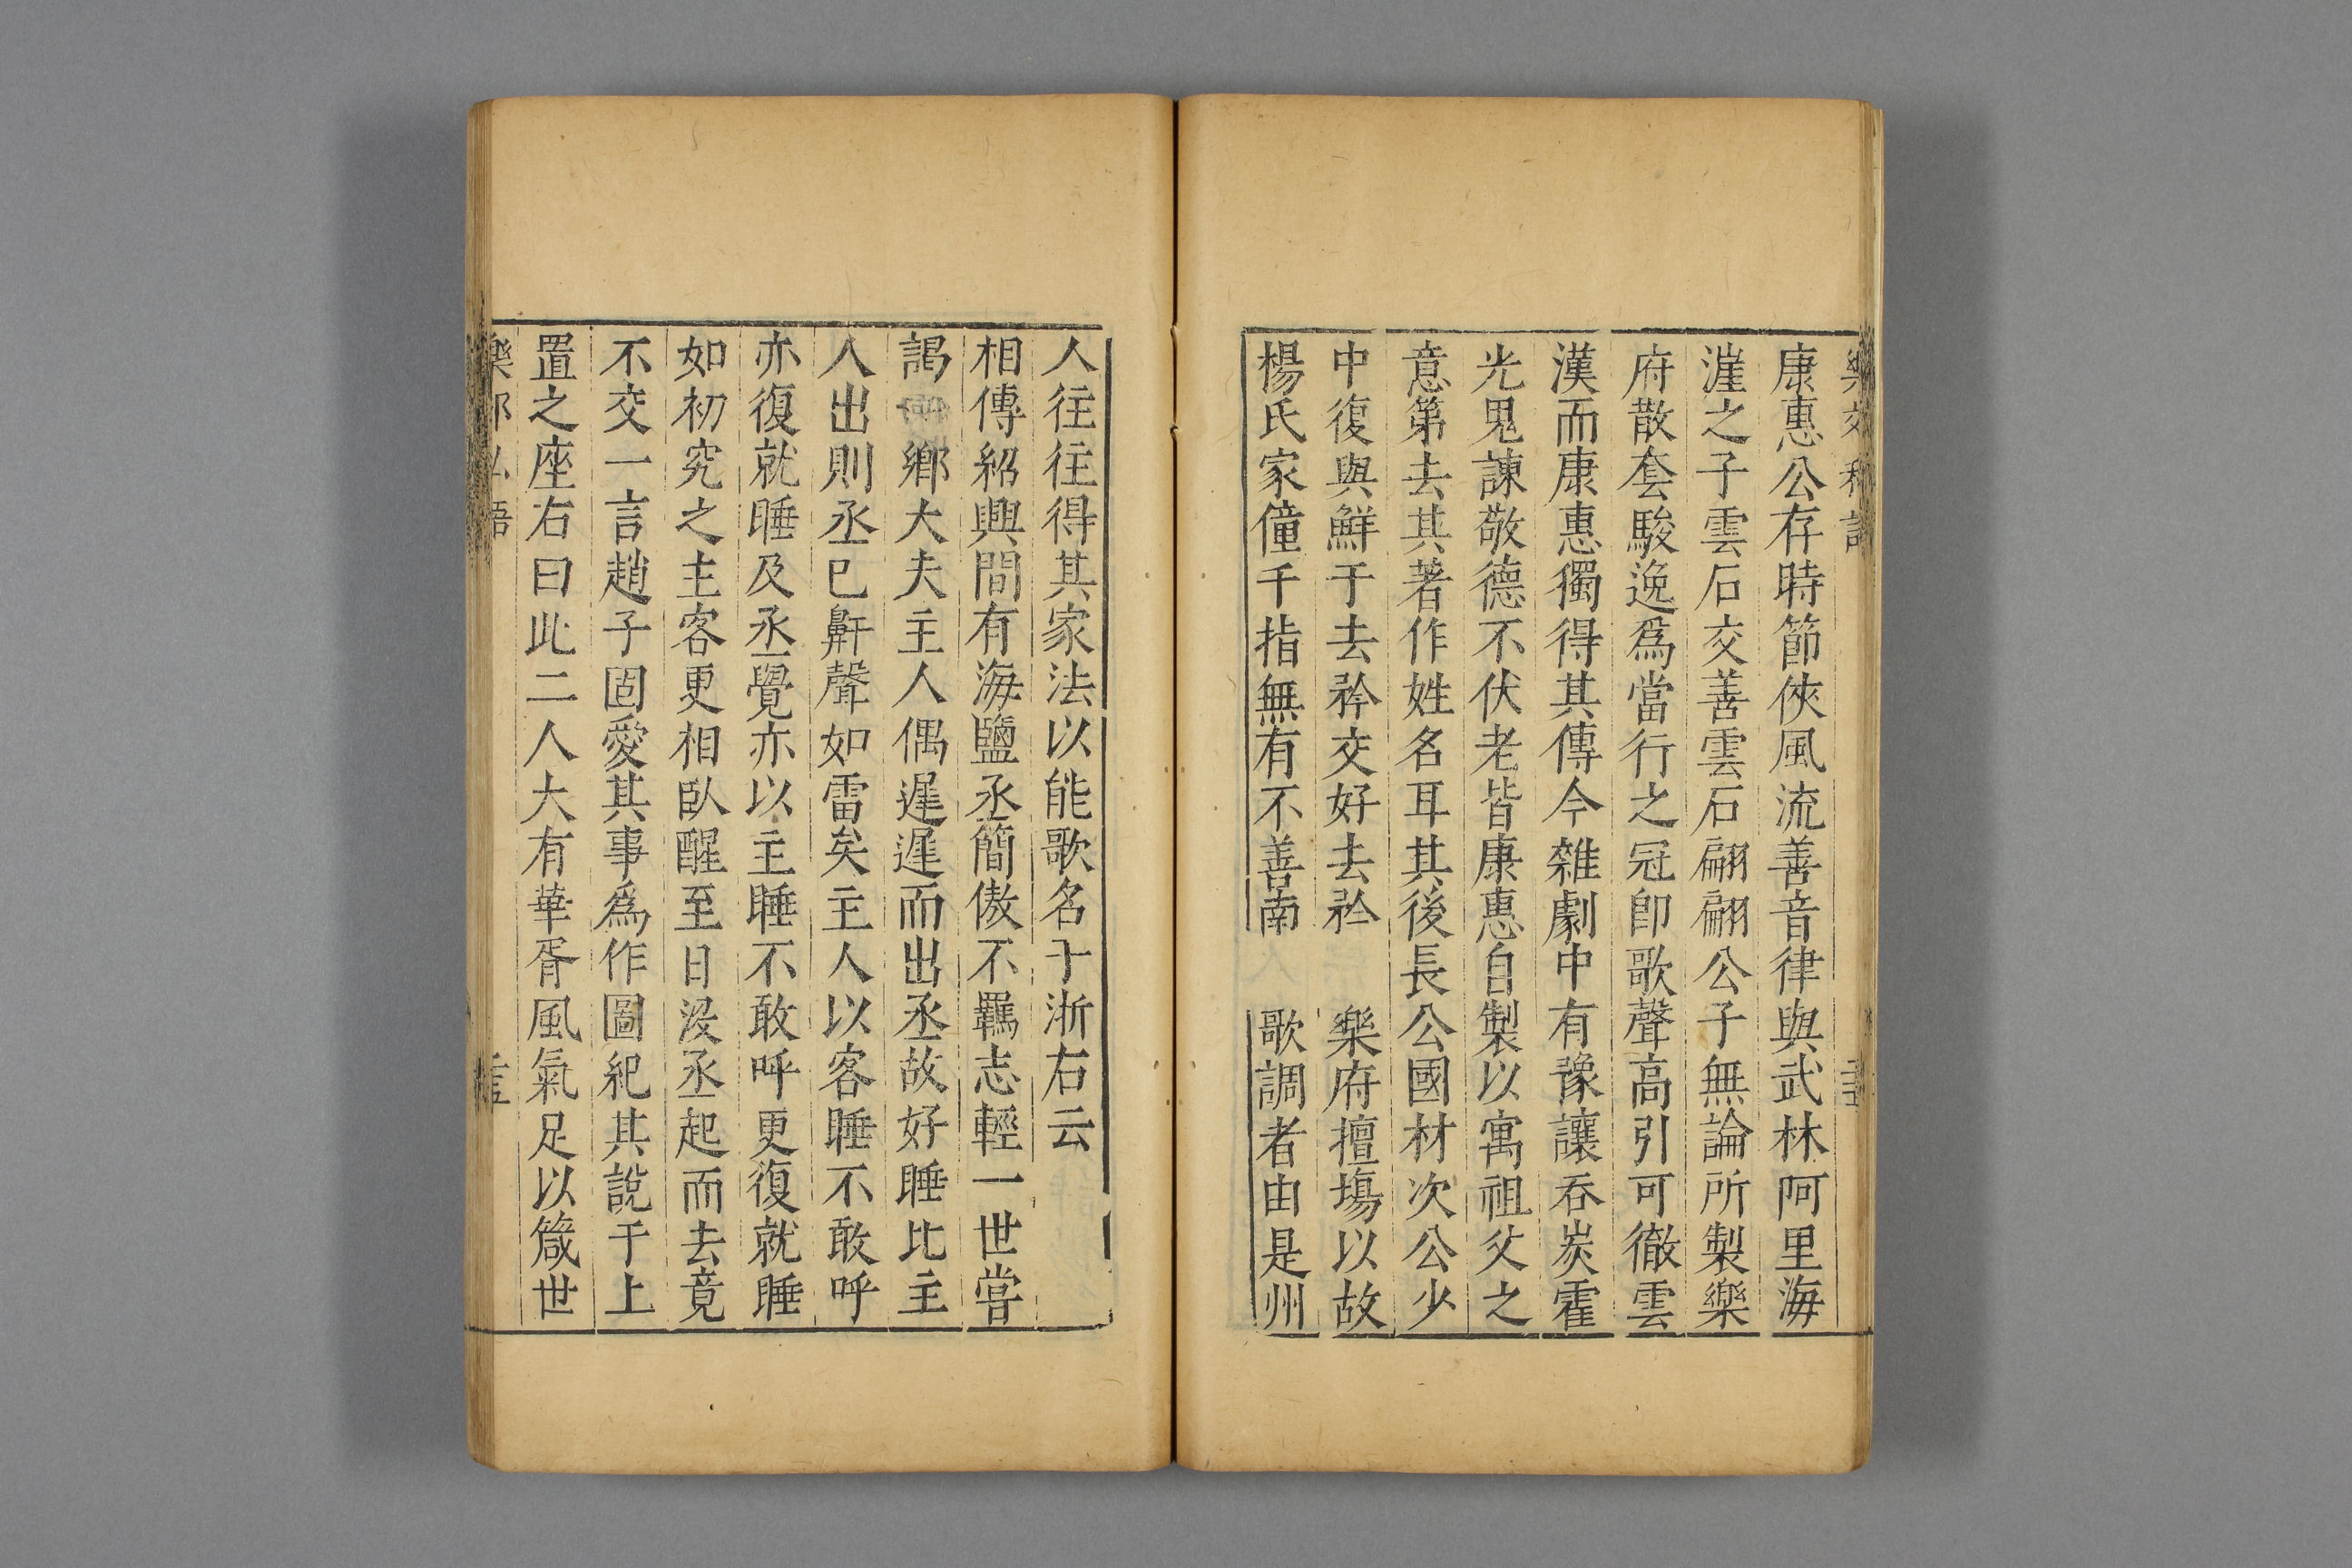 康惠公存時節俠風流善音律與武林阿里海
漄之子雲石交善雲石翩翩公子無論所製樂
府散套駿逸爲當行之冠卽歌聲高引可徹雲
漢而康惠獨得其傳今雜劇中有豫讓吞炭霍
光鬼諫敬德不伏老皆康惠自製以寓祖父之
意第去其著作姓名耳其後長公國材次公少
中復與鮮于去矜交好去矜 樂府擅塲以故
楊氏家僮千指無有不善南 歌調者由是州
人往往得其家法以能歌名于浙右云
相傳紹興間有海鹽丞簡傲不羈志輕一世嘗
謁 鄉大夫主人偶遲遲而出丞故好睡比主
人出則丞已鼾聲如雷矣主人以客睡不敢呼
亦復就睡及丞覺亦以主睡不敢呼更復就睡
如初究之主客更相臥醒至日沒丞起而去竟
不交一言趙子固愛其事爲作圖紀其說于上
置之座右曰此二人大有華胥風氣足以箴世